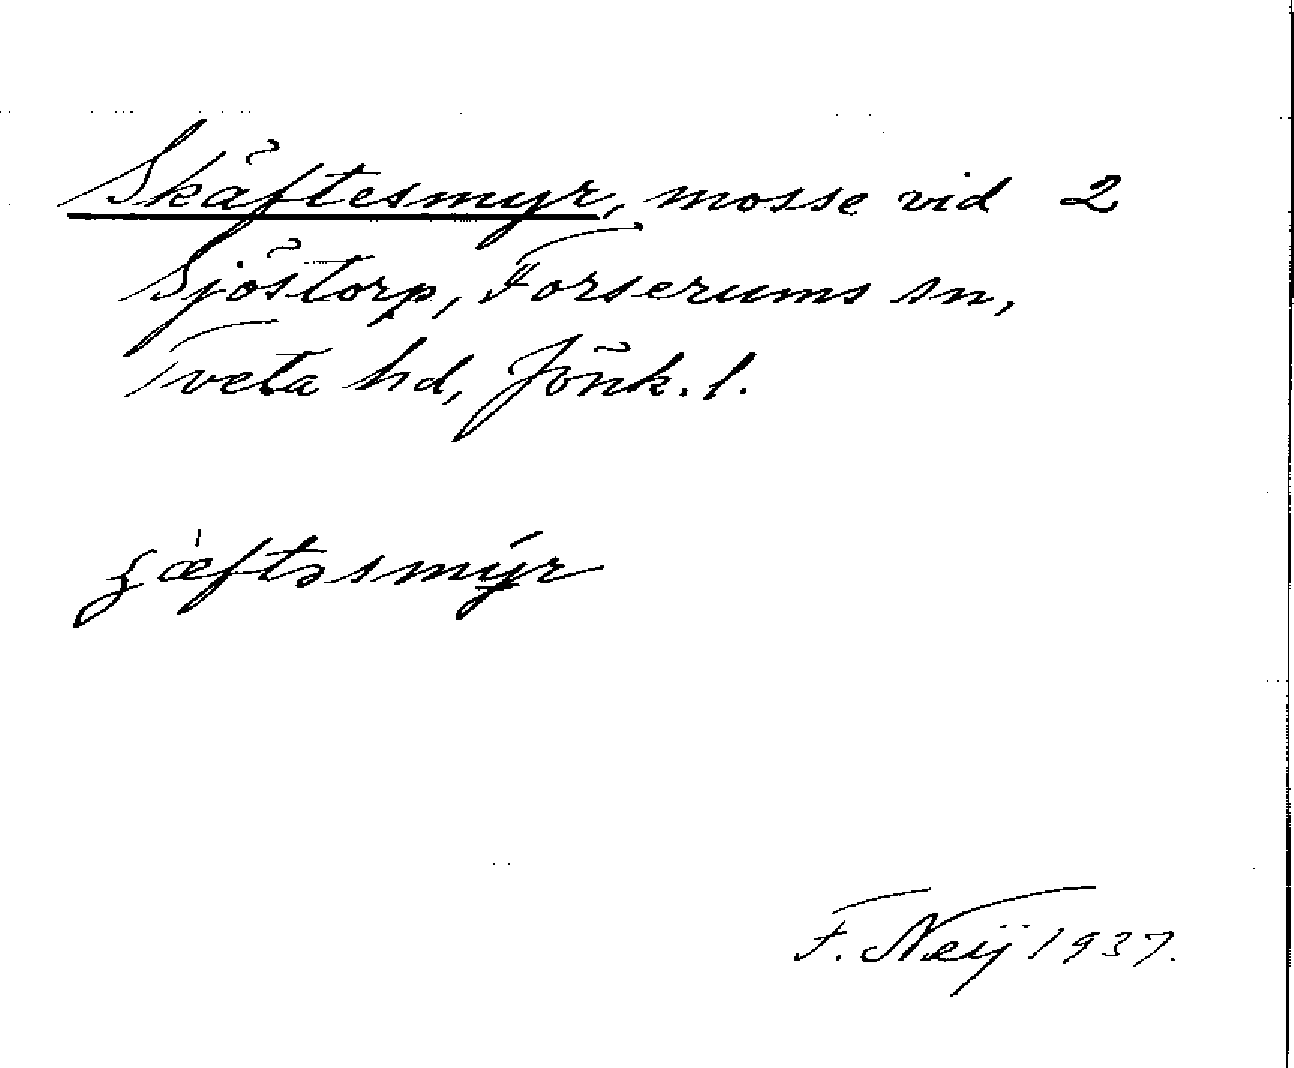 Skäftesmyr, mosse vid 2
Sjöstorp, Forserums sn,
Tveta hd, Jönk. l.
F. Neij 1937.